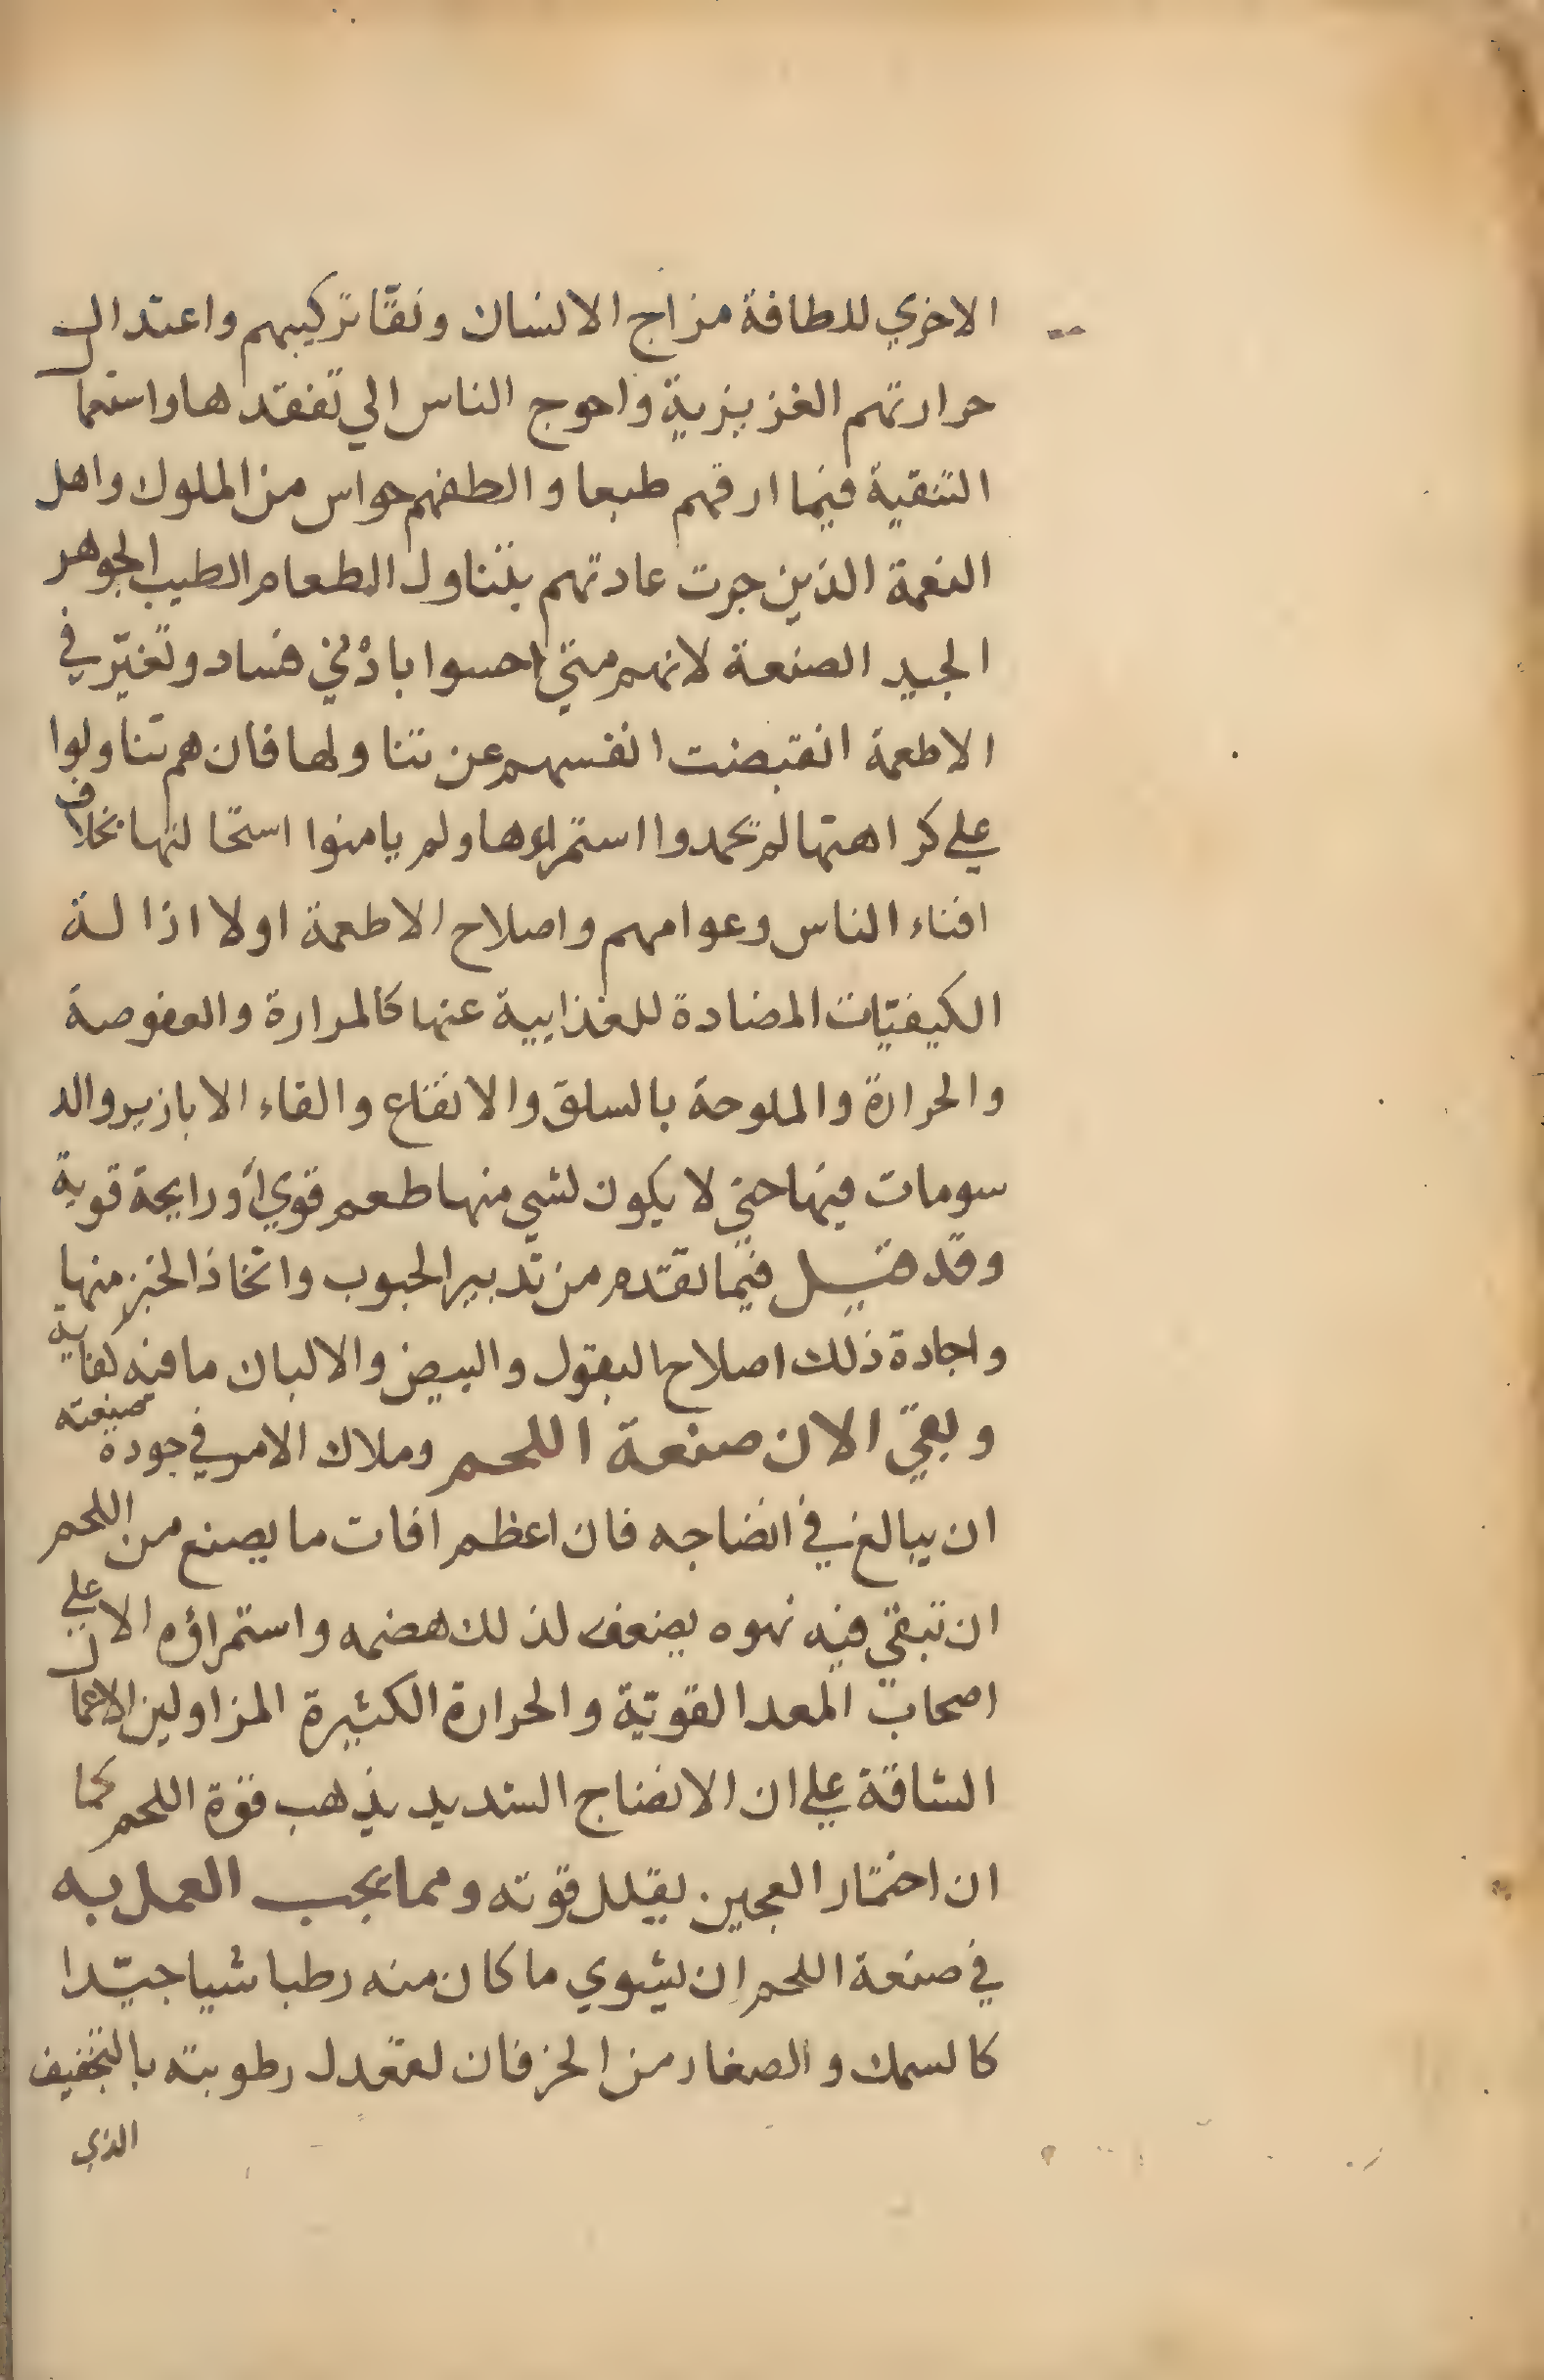 الاخري للطافة مزاج الانسان ونقّا تركيبهم واعتدال
حرارتهم الغزيزية واحوج الناس الي تفقدها واستعمال
التنقية فيما ارقهم طبعا والطفهم حواس من الملوك واهل
النعمة الذين جرت عادتهم بتناول الطعام الطيب الجوهر
الجيد الصنعة لانهم متي احسوا بادني فساد وتغيّر في
الاطعمة انقبضت انفسهم عن تناولها فان هم تناولوا
علي كراهتها لم يحمدوا استمراءها ولم يامنوا استحالتها بخلاف
افناء الناس وعوامهم واصلاح الاطعمة اولا ازالة
الكيفيّات المضادة للغذايية عنها كالمرارة والعفوصة
والحرارة والملوحة بالسلق والانقاع والقاء الابازير والد
سومات فيها حتي لا يكون لشي منها طعم قوي أو رايحة قوية
وقد قيل فيما تقدم من تدبير الحبوب واتخاذ الخبز منها
واجادة ذلك اصلاح البقول والبيض والالبان ما فيه كفاية
وبقي الان صنعة اللحم وملاك الامر في جودة صنعته
ان يبالغ في انضاجه فان اعظم افات ما يصنع من اللحم
ان تبقي فيه نهوه يضعف لذلك هضمه واستمراؤه الا علي
اصحاب المعد القويّة والحرارة الكثيرة المزاولين الاعمال
الشاقة علي ان الانضاج الشديد يذهب قوة اللحم كما
ان اختمار العجين يقلل قوته ومما يجب العمل به
في صنعة اللحم ان يشوي ما كان منه رطبا شيا جيّدا
كالسمك والصغار من الخرفان لتعدل رطوبته بالتجفيف
الذي